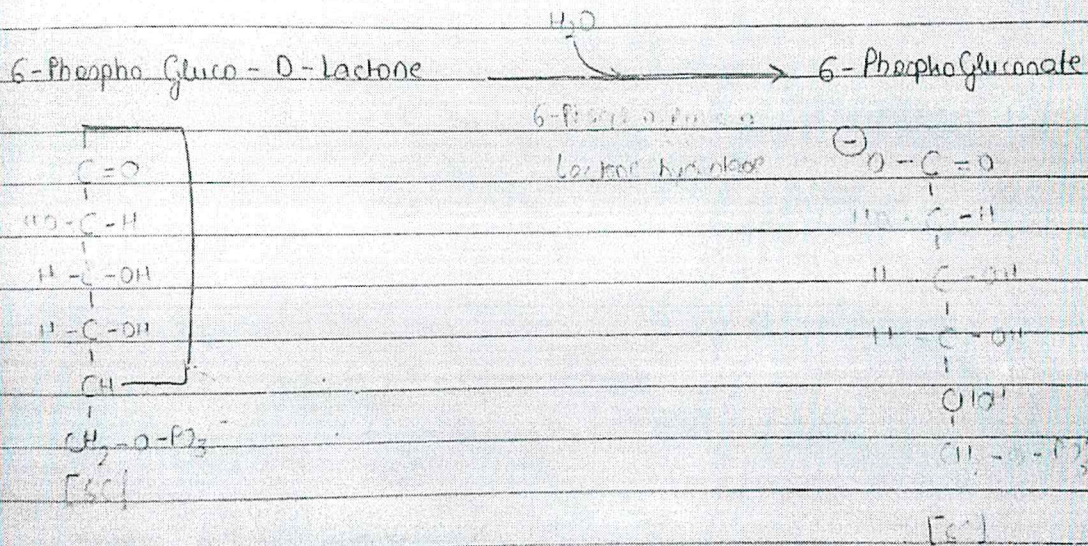 H₂O
6-Phospho Gluco-D-Lactone → 6-PhosphoGluconate
lactone
C=O
HO-C-H
H-C-OH
H-C-OH
CH
CH₂-O-PO₃⁻
⊖O-C=O
HO-C-H
H C-OH
H-C-OH